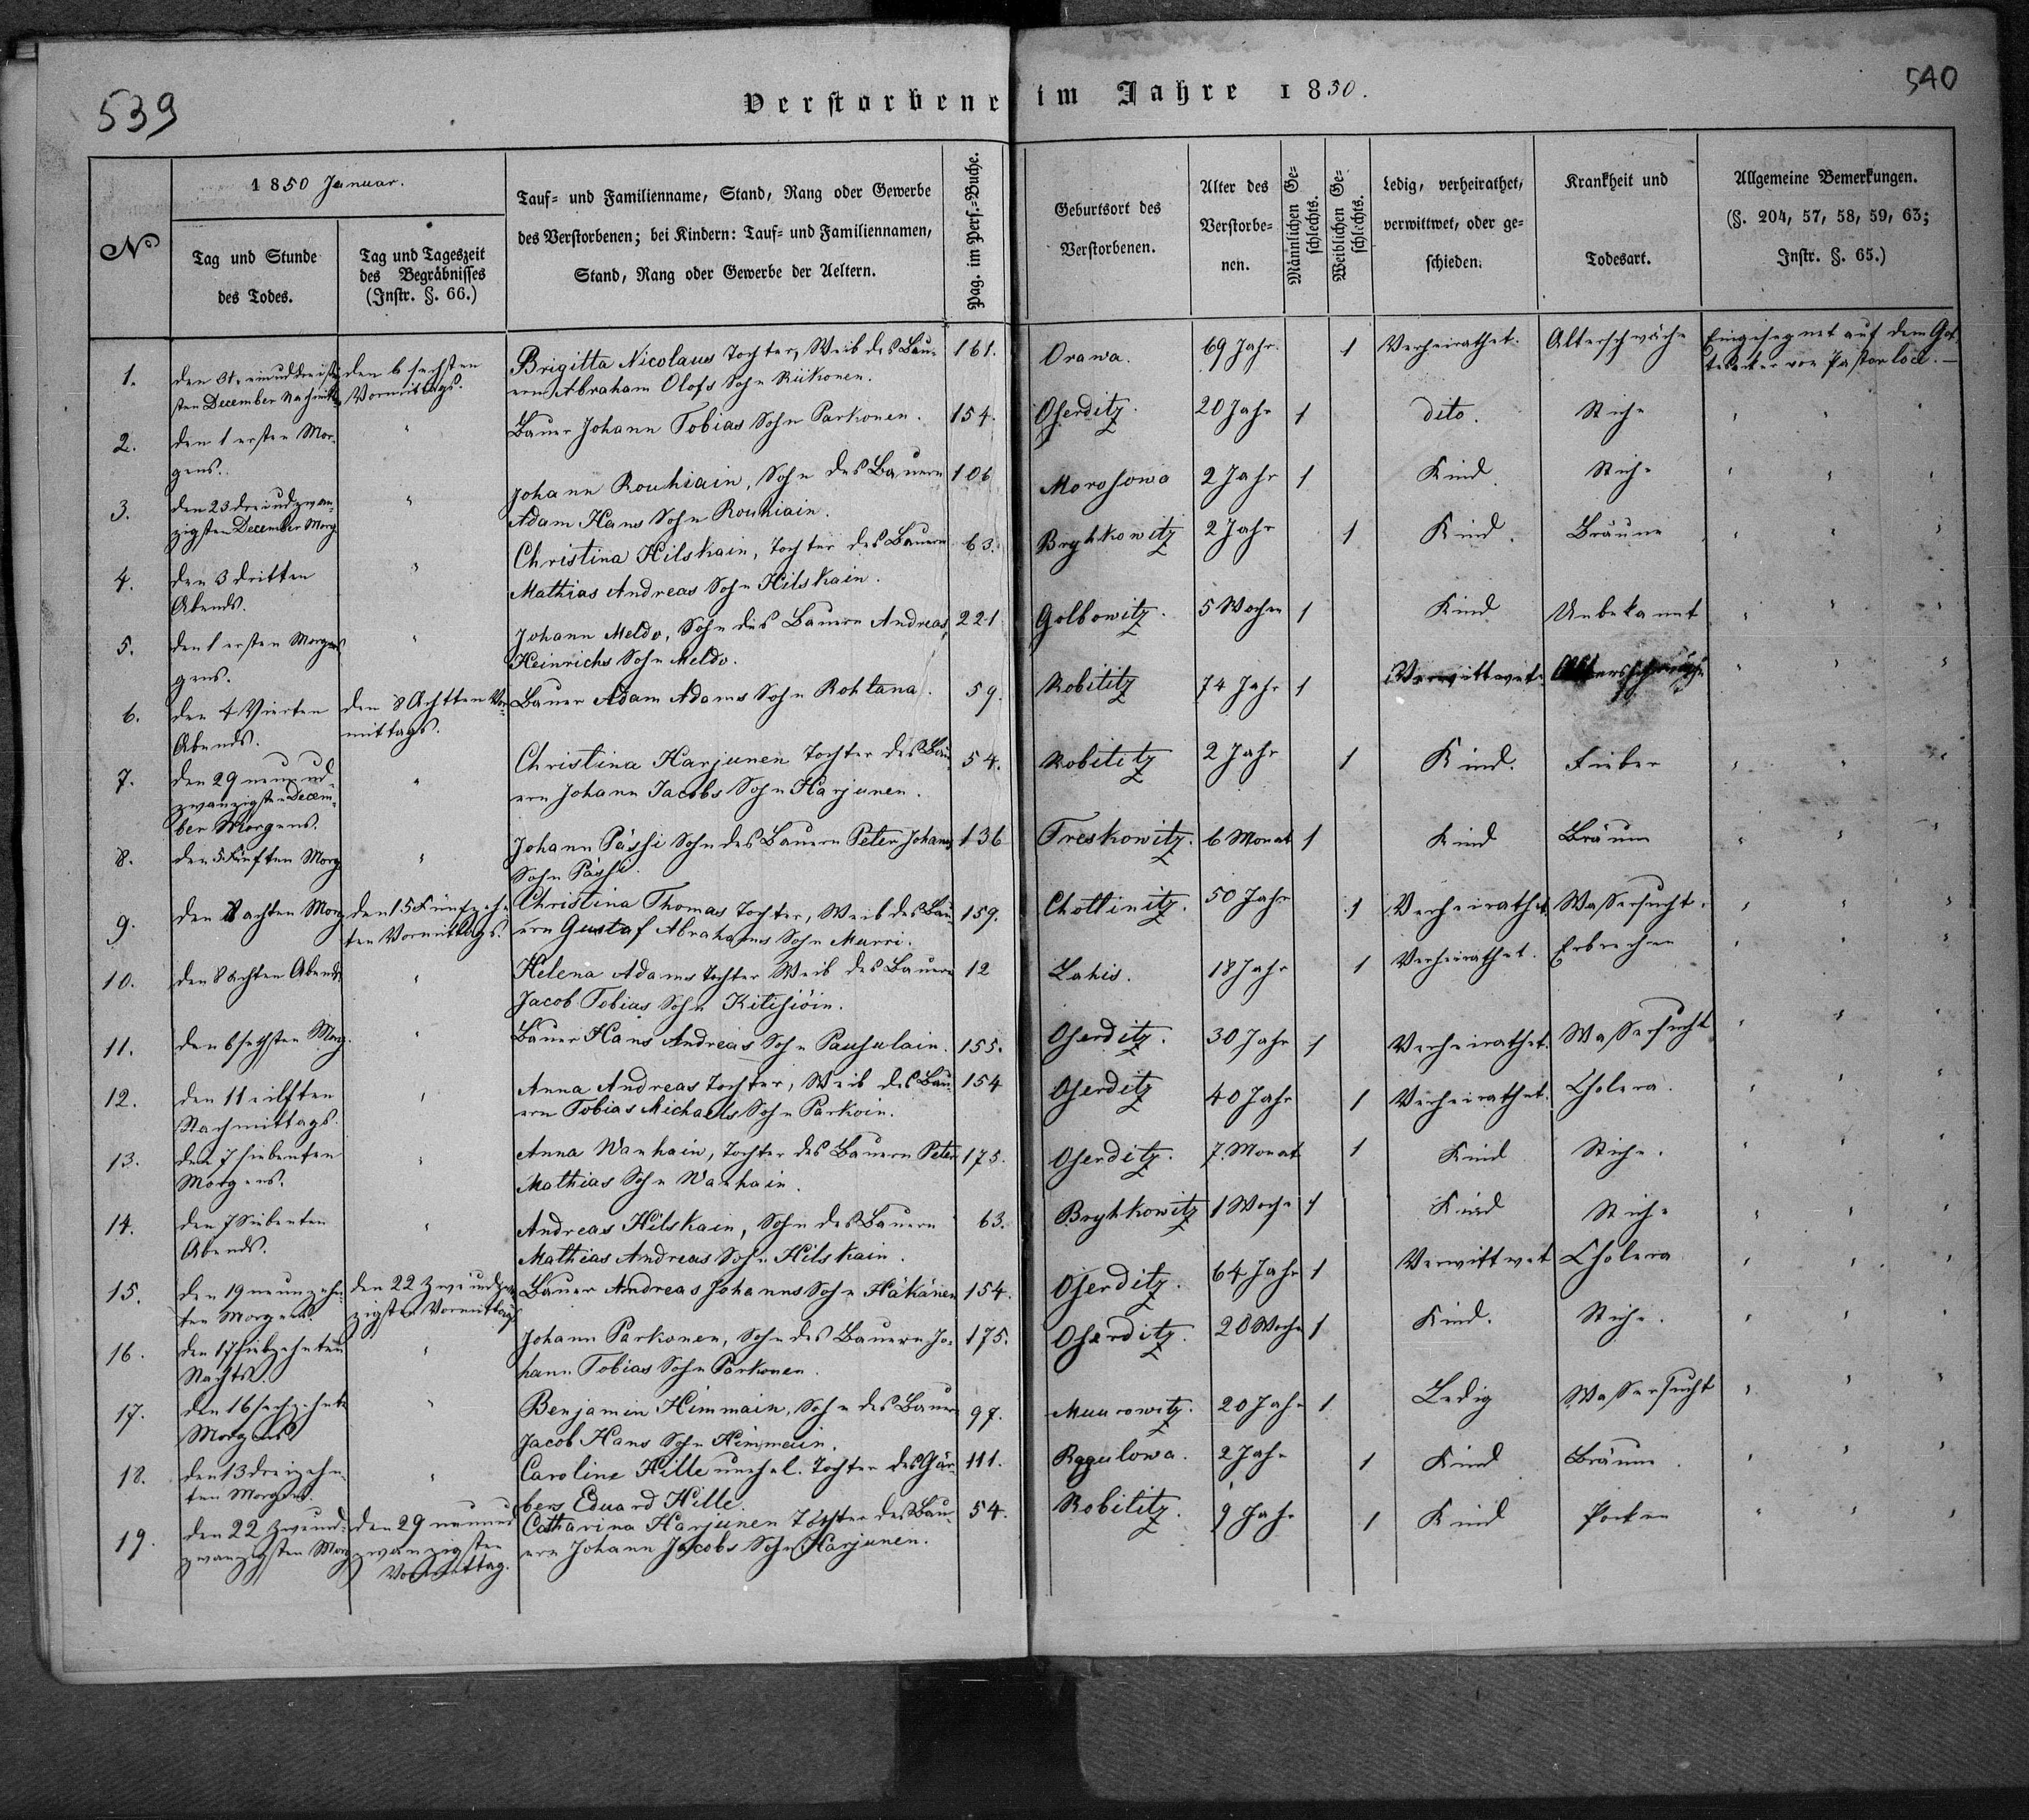 539
Verstorbene im Jahre 1850.
540
No
1850 Januar.
Tag und Stunde
des Todes.
Tag und Tageszeit
des Begräbnisses
(Instr. §. 66.)
Tauf- und Familienname, Stand, Rang oder Gewerbe
des Verstorbenen; bei Kindern: Tauf- und Familiennamen,
Stand, Rang oder Gewerbe der Aeltern.
Pag. im Pers.-Buche.
Geburtsort des
Verstorbenen.
Alter des
Verstorbe-
nen.
Männlichen Ge-
schlechts.
Weiblichen Ge-
schlechts.
Ledig, verheirathet,
verwittwet, oder ge-
schieden.
Krankheit und
Todesart.
Allgemeine Bemerkungen.
(§. 204, 57, 58, 59, 63;
Instr. §. 65.)
1. den 31. einuddreißig den 6 sechsten Brigitta Nicolaus Tochter, Weib des Bau- 161. Orawa. 69 Jahr. 1 Verheirathet. Altersschwäche Eingesegnet auf dem Got-
sten December Nachmitt Vormittags. ern Abraham Olofs Sohn Riikonen. tesacker von Pastor loci. —
2. den 1 ersten Mor- " Bauer Johann Tobias Sohn Parkonen. 154. Oserditz. 20 Jahr 1 dito. Stiche " "
gens.
3. den 23 dreiudzwan- " Johann Rouhiain, Sohn des Bauern 106 Morosowa 2 Jahr 1 Kind. Stiche " " "
zigsten December Morg Adam Hans Sohn Rouhiain.
4. den 3 dritten " Christina Hilskain, Tochter des Bauern 63. Bryhkowitz 2 Jahr 1 Kind. Bräune " " "
Abends. Mathias Andreas Sohn Hilskain.
5. den 1 ersten Morgens " Johann Meldo, Sohn des Bauern Andreas 221 Golbowitz. 5 Wochen 1 Kind Unbekannt " " "
gens. Heinrichs Sohn Meldo.
6. den 4 Vierten den 8 Achtten Vor- Bauer Adam Adams Sohn Rohtana. 59. Kobilitz 74 Jahr 1 Verwittwet. Altersschwäche " " "
Abends. mittags.
7. den 29 neun ud- " Christina Harjunen Tochter des Bau- 54. Kobilitz 2 Jahr 1 Kind. Fieber " " "
zwanzigsten Decem- ern Johann Jacobs Sohn Harjunen.
ber Morgens.
8. den 5. Fünften Morg " Johann Pässi Sohn des Bauern Peter Johanns 136 Treskowitz. 6 Monat 1 Kind Bräune " " "
Sohn Pässi.
9. den 8 achten Morg den 15 Fünfzehn- Christina Thomas Tochter, Weib des Bau- 159. Chottinitz. 50 Jahr 1 Verheirathet. Wassersucht. " " "
ten Vormittags. ern Gustaf Abrahams Sohn Murri.
10. den 8 Achten Abends " Helena Adams Tochter Weib des Bauern 12 Lahis. 18 Jahr 1 Verheirathet. Erbrechen " " "
Jacob Tobias Sohn Kitisiöin.
11. den 6 sechsten Morg. " Bauer Hans Andreas Sohn Pausulain. 155. Oserditz. 30 Jahr 1 Verheirathet. Wassersucht " " "
12. den 11 eilften " Anna Andreas Tochter, Weib des Bau- 154 Oserditz 40 Jahr 1 Verheirathet. Cholera. " " "
Nachmittags. ern Tobias Michaels Sohn Parkoin.
13. den 7 siebenten " Anna Wanhain, Tochter des Bauern Peter 175. Oserditz. 7. Monat 1 Kind Stiche. " " "
Morgens. Mathias Sohn Wanhain.
14. den 7 Siebenten " Andreas Hilskain, Sohn des Bauern 63. Bryhkowitz 1 Woche 1 Kind Stiche " " "
Abends. Mathias Andreas Sohn Hilskain.
15. den 19 neunzehn- den 22 zweiundzwan Bauer Andreas Johanns Sohn Häkänen 154. Oserditz. 64 Jahr 1 Verwittwet Cholera " " "
ten Morgens. zigsten Vormittags
16. den 17 siebzehnten " Johann Parkonen, Sohn des Bauern Jo- 175. Oserditz. 20 Woche 1 Kind. Stiche. " " "
Nachts. hann Tobias Sohn Parkonen.
17. den 16 sechzehnte " Benjamin Himmain, Sohn des Bauern 97. Muurowitz. 20 Jahr 1 Ledig Wassersucht " " "
Morgens Jacob Hans Sohn Himmain.
18. den 13 dreizehn- " Caroline Hille unehel. Tochter des Gär- 111. Rogulowa. 2 Jahr 1 Kind Bräune. " " "
ten Morgens. bers Eduard Hille.
19. den 22 Zweiund- den 29 neunund Catharina Harjunen Tochter des Bau- 54. Kobilitz. 9 Jahr 1 Kind Pocken " " "
zwanzigsten Morg zwanzigsten ern Johann Jacobs Sohn Harjunen.
Vormittag.